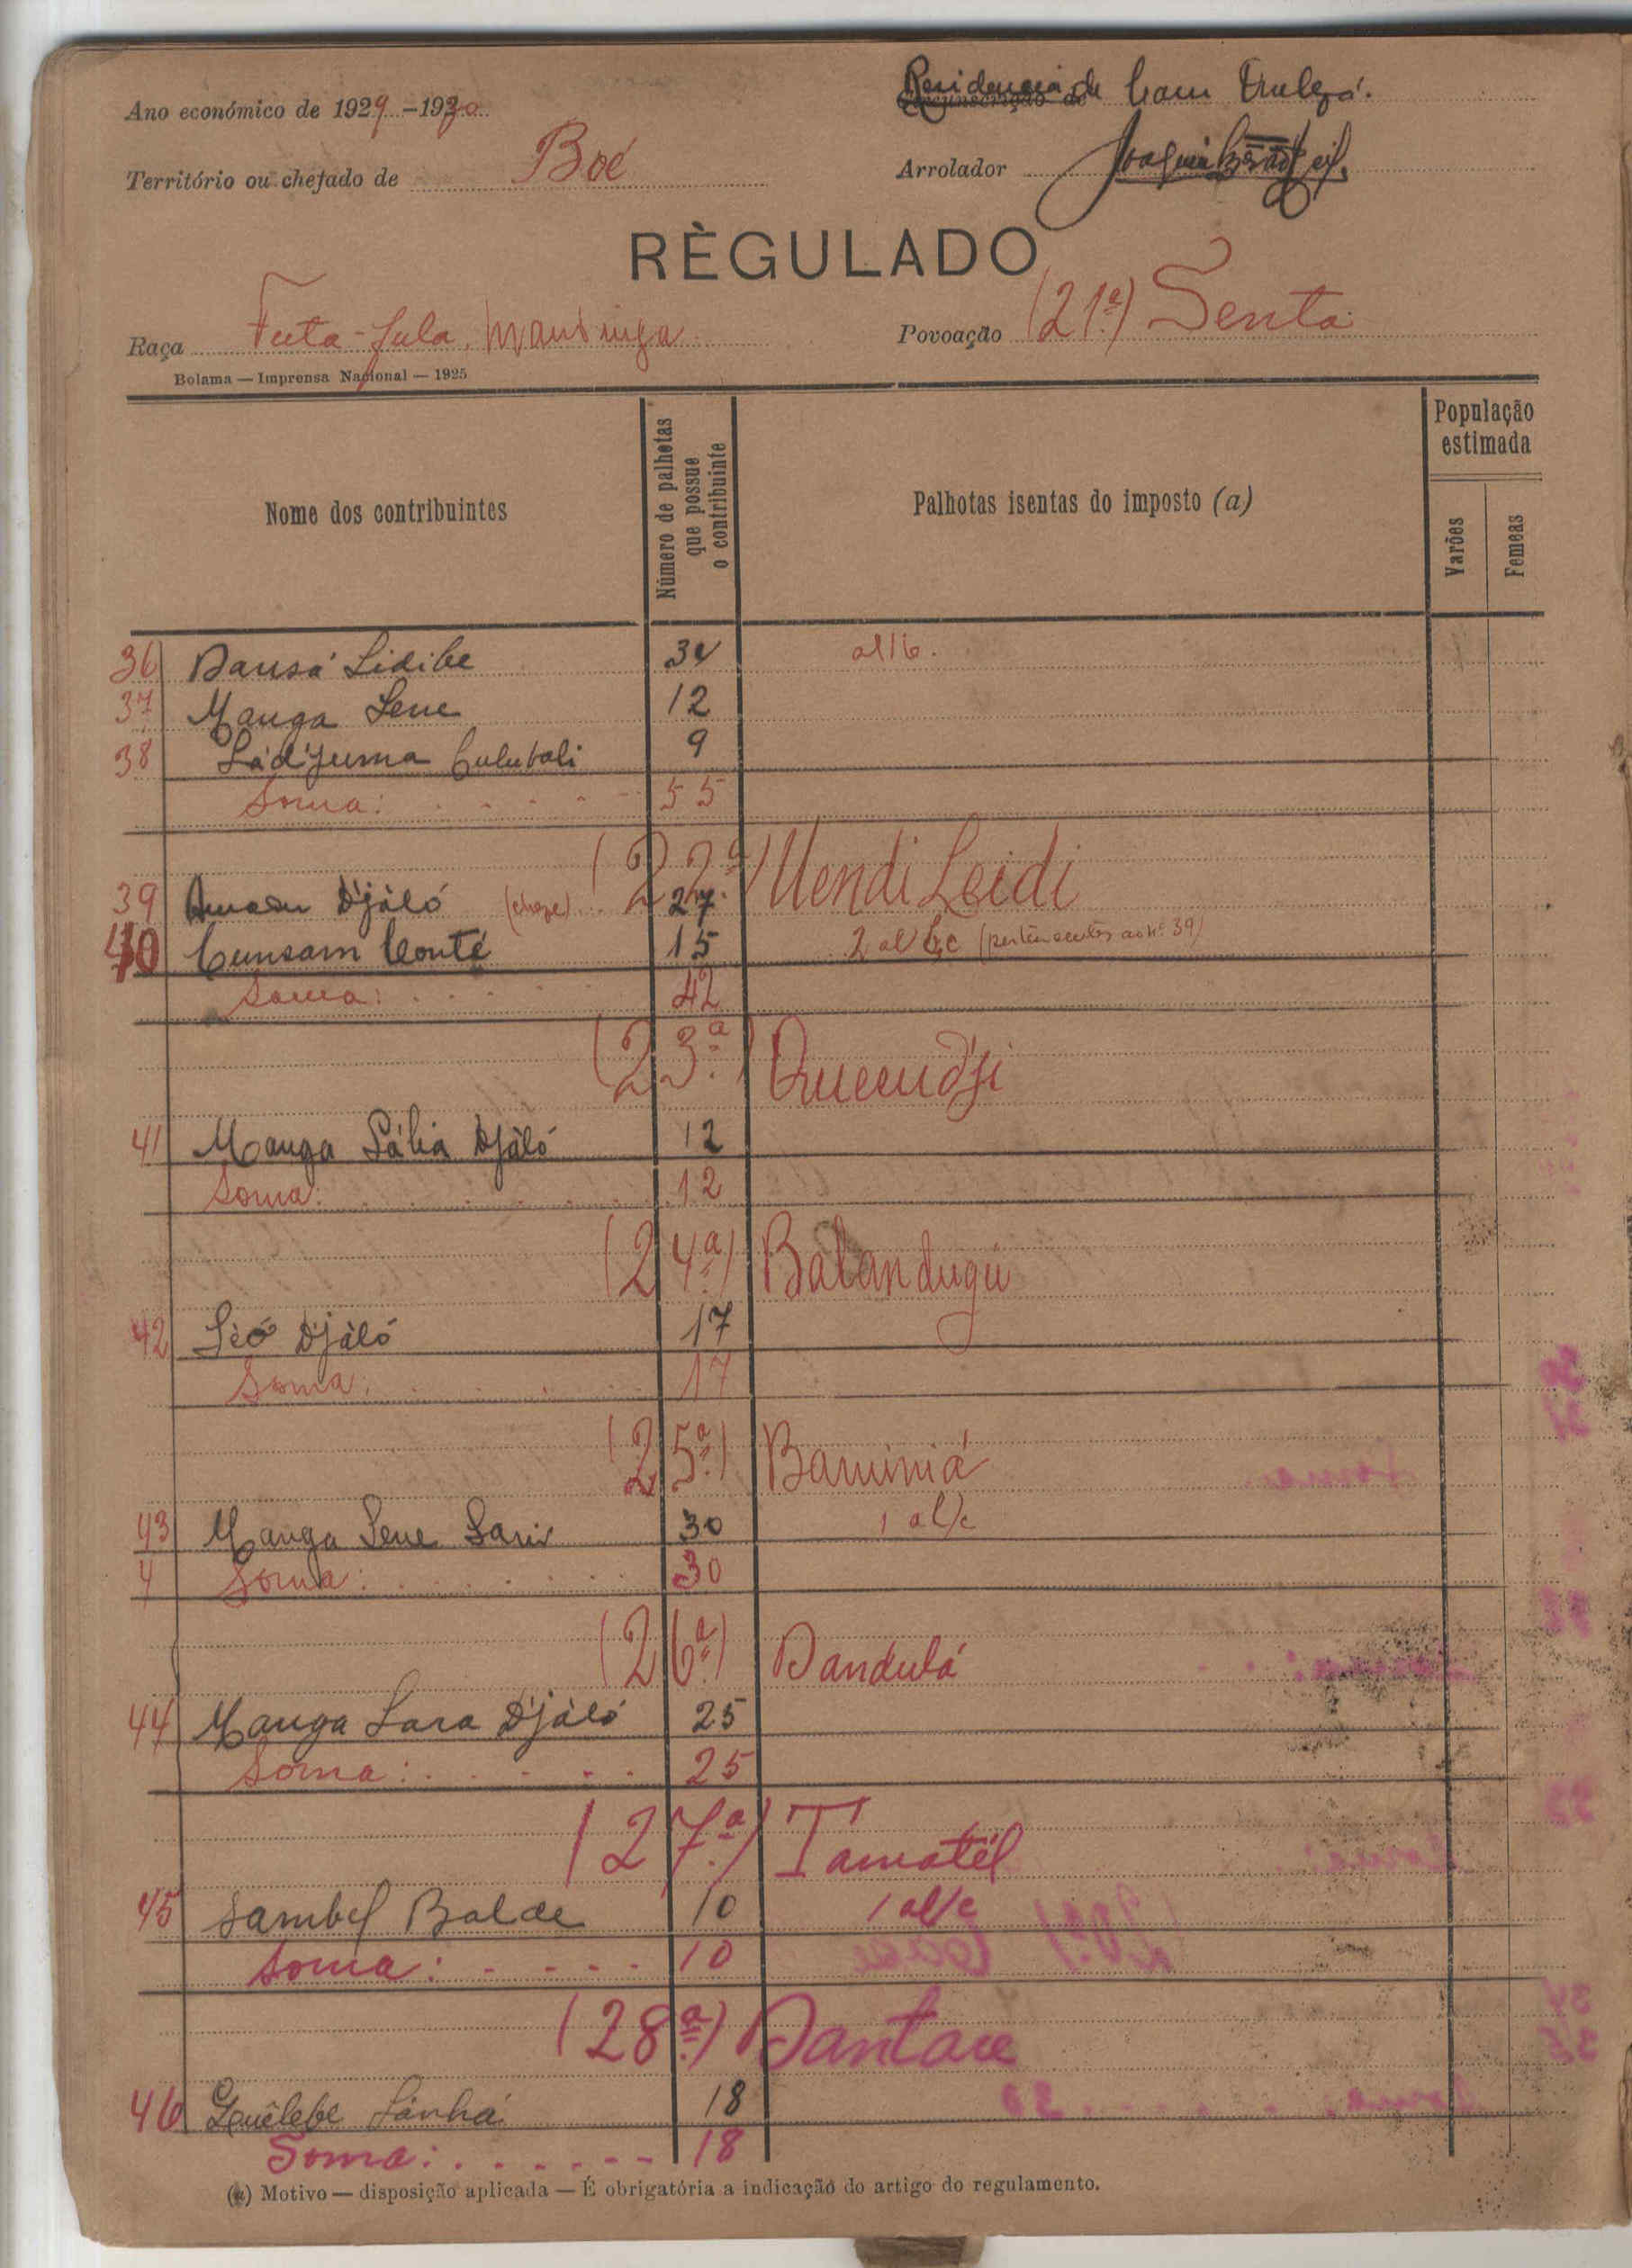 Ano económico de 1929-1930
Residencia de
Território ou chefado de Boé
Arrolador Joaquim
RÈGULADO
Raça Futa-Fula, Mandinga
Povoação (21ª) Senta
Bolama — Imprensa Nacional — 1925
Nome dos contribuintes
Número de palhotas que possue o contribuinte
Palhotas isentas do imposto (a)
População estimada
Varões
Femeas
36 Dansá Lidibe 34
37 Manga Sene 12
38 Culubali 9
Soma: 55
(22ª) Uendi Leidi
39 Djáló (chefe) 27
40 Cunsam Conté 15 2 al (pertencentes ao nº 39)
Soma: 42
(23ª)
41 Manga Sália Djáló 12
Soma: 12
(24ª) Balandugú
42 Séó Djáló 17
Soma: 17
(25ª) Baminiá
43 Manga Sene 30 1 al/c
4 Soma: 30
(26ª) Dandulá
44 Manga Lara Djáló 25
Soma: 25
(27ª) Tamatél
45 Sambel Balde 10 1 al/c
Soma: 10
(28ª) Dantare
46 Sánhá 18
Soma: 18
(a) Motivo — disposição aplicada — É obrigatória a indicação do artigo do regulamento.